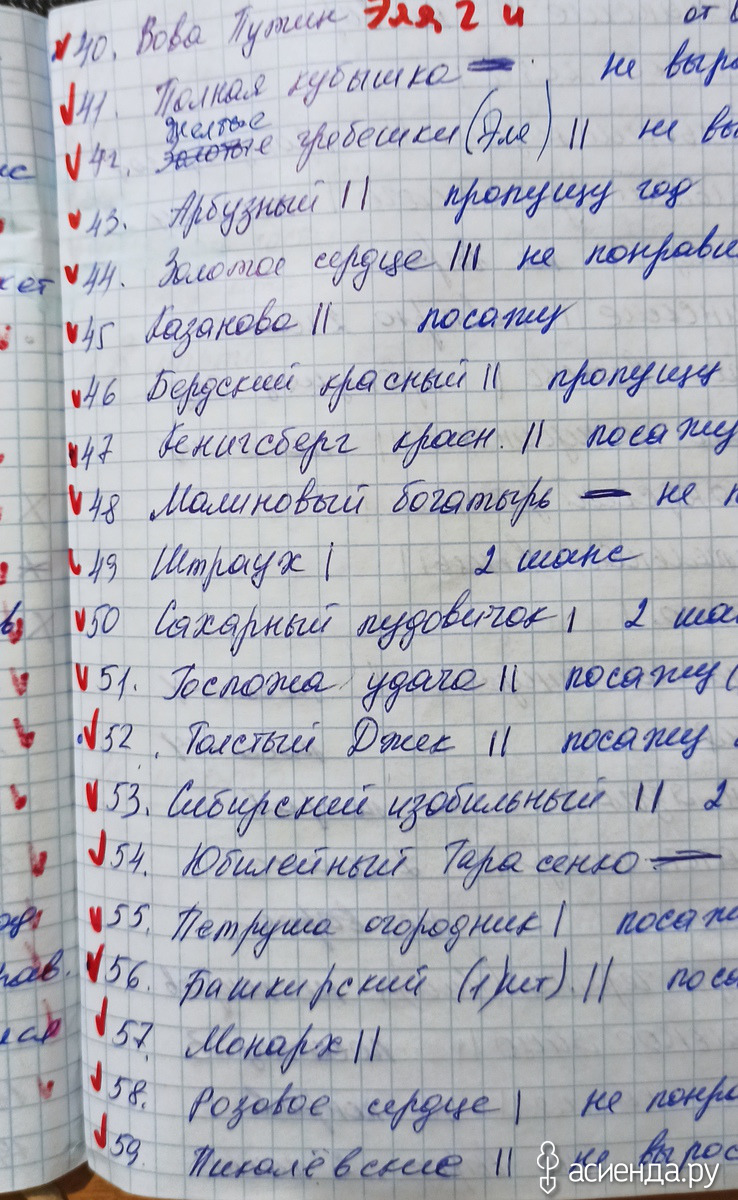 40. Вова Путин Эля 2 и от
41. Полная кубышка — не выра
Желтые
42. Золотые гребешки (Эля) || не вы
43. Арбузный || пропущу год
44. Золотое сердце ||| не понрави
45 Казанова || посажу
46 Бердский красный || пропущу
47 Кенигсберг красн. || посажу
48 Малиновый богатырь — не п
49 Штраух | 2 шанс
50 Сахарный пудовичок | 2 шан
51. Госпожа удача || посажу (
52. Толстый Джек || посажу
53. Сибирский изобильный || 2
54. Юбилейный Тарасенко —
55. Петруша огородник | посаж
56. Башкирский (1) шт) || поса
57. Монарх ||
58. Розовое сердце | не понра
59. Пикалёвские || не вырос
асиенда.ру